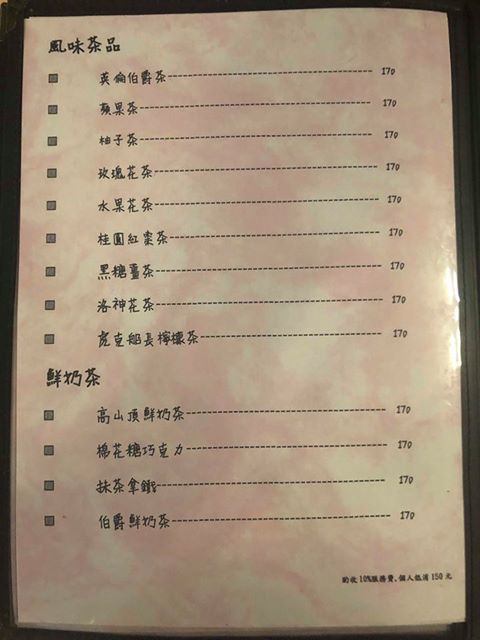 風味茶品
英倫伯爵茶 170
蘋果茶 170
柚子茶 170
玫瑰花茶 170
水果花茶 170
桂圓紅棗茶 170
黑糖薑茶 170
洛神花茶 170
虎克船長檸檬茶 170
鮮奶茶
高山頂鮮奶茶 170
棉花糖巧克力 170
抹茶拿鐵 170
伯爵鮮奶茶 170
酌收10%服務費、個人低消150元